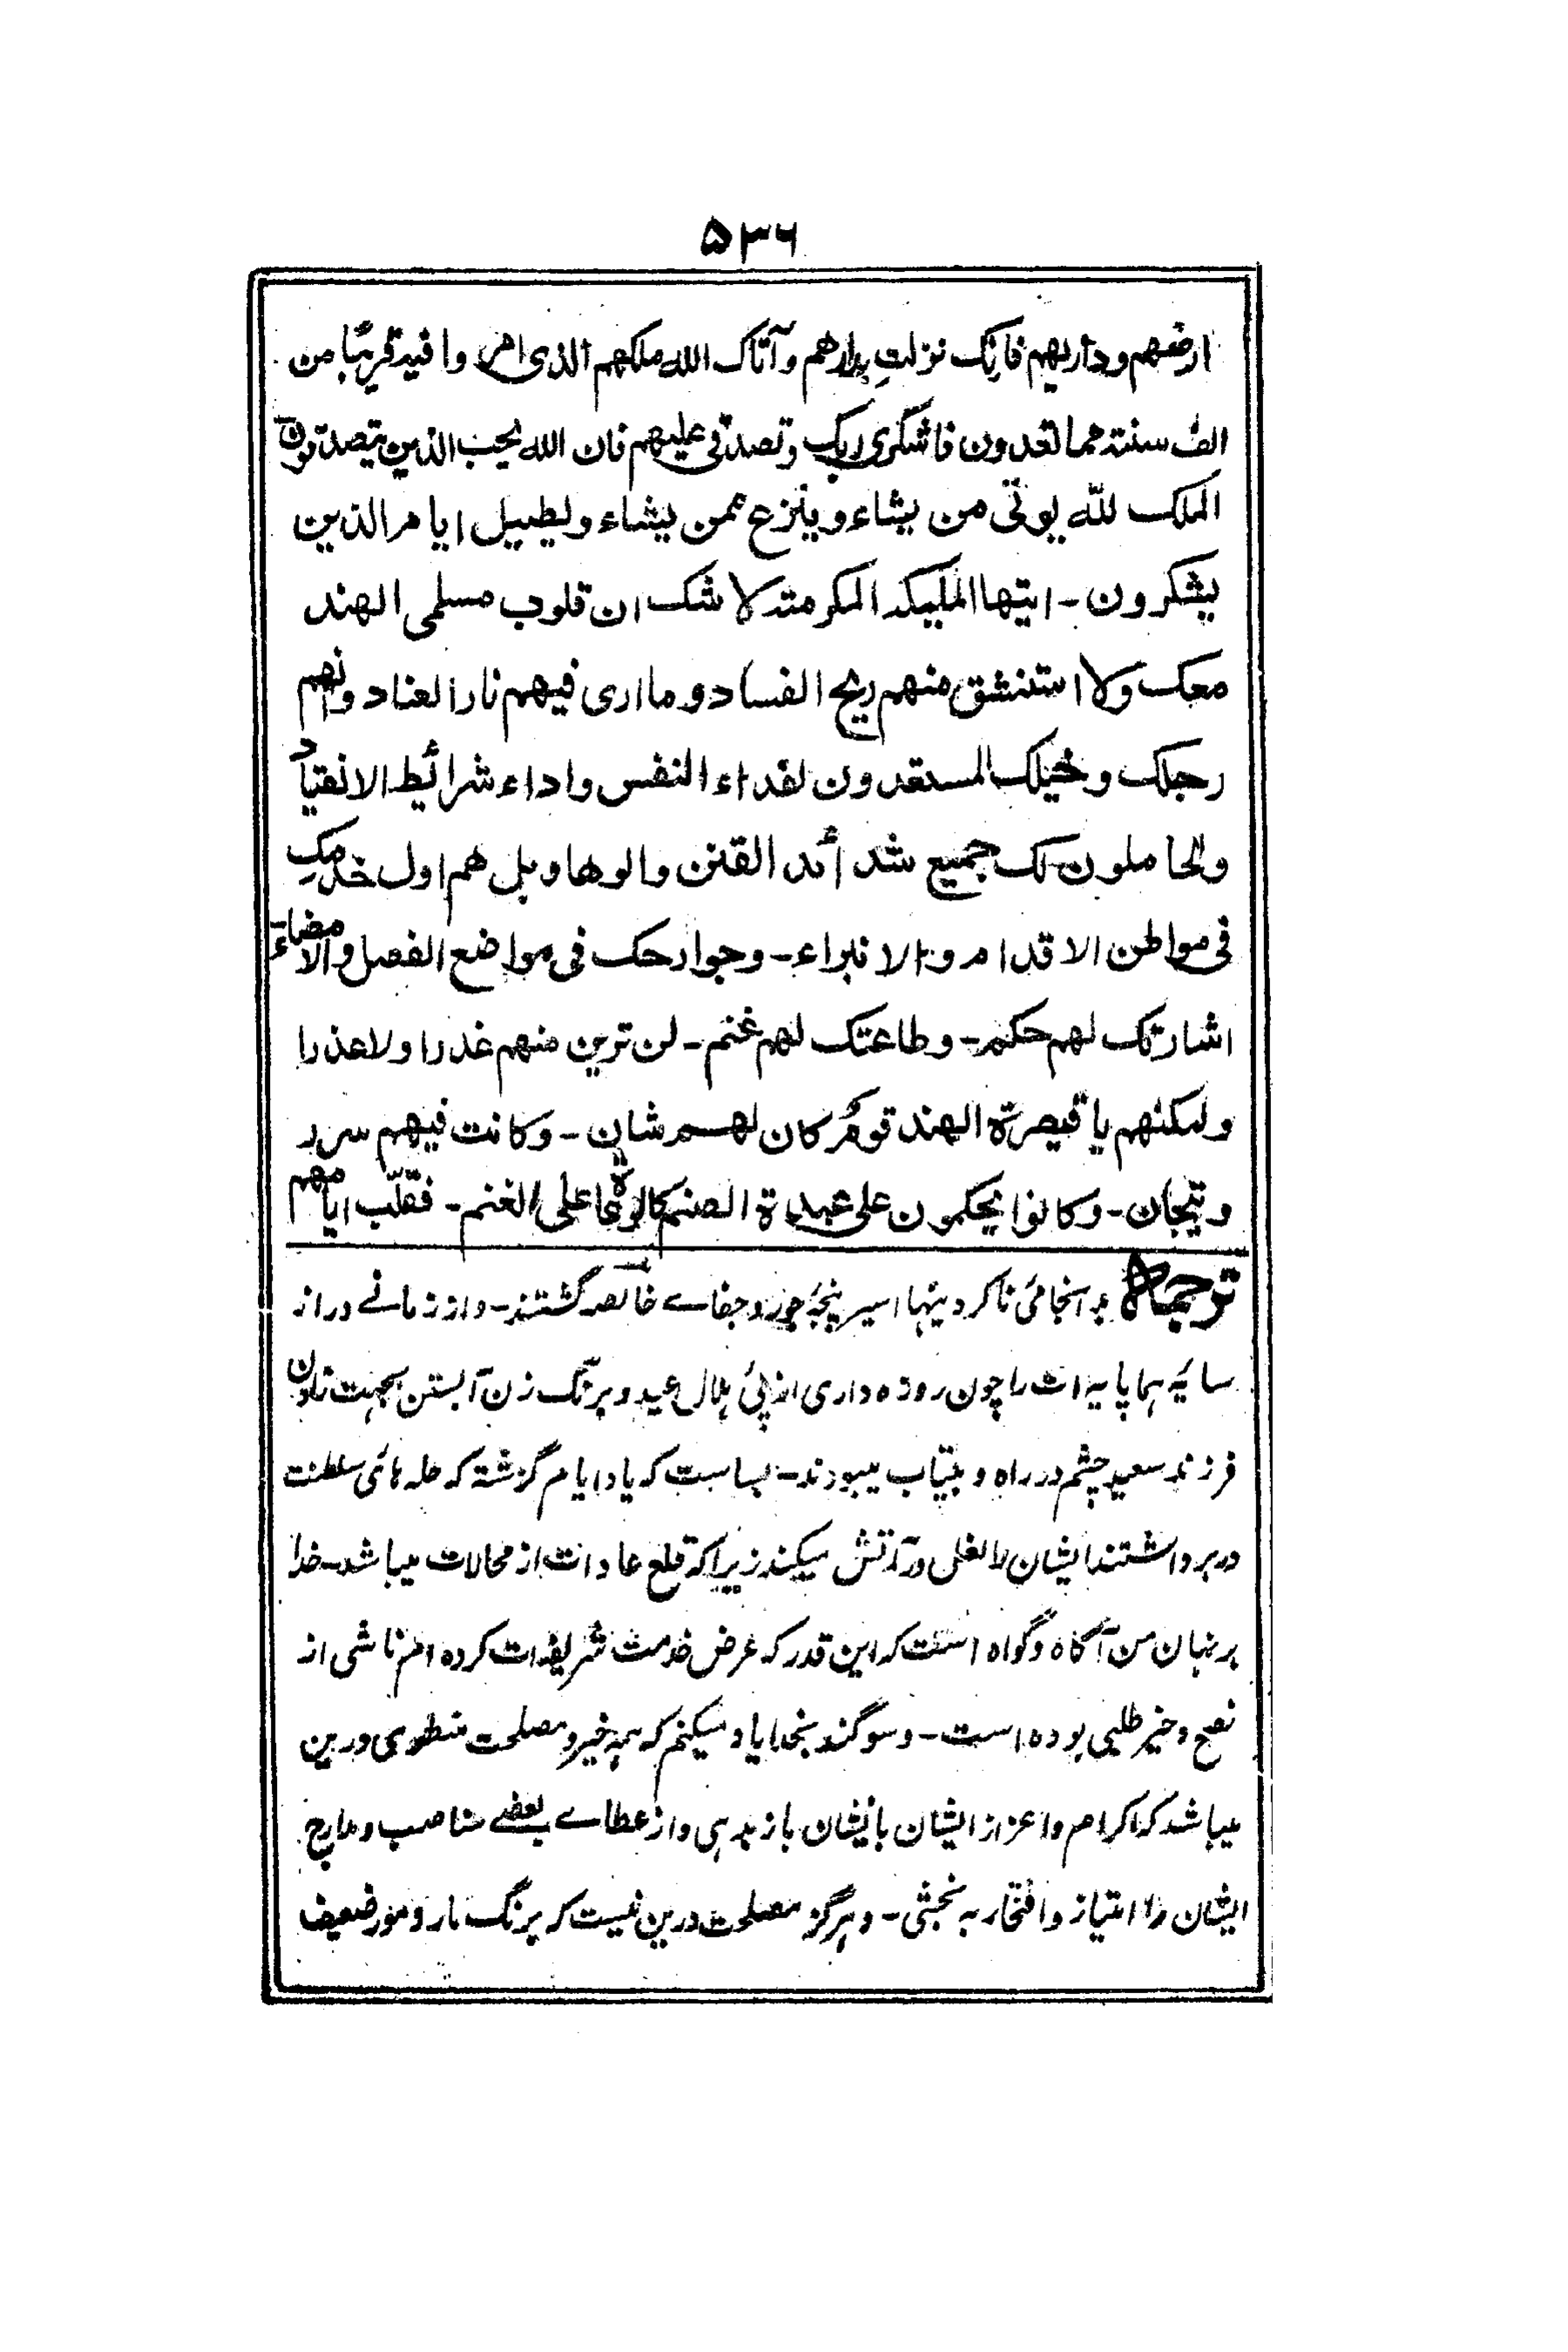 ۵۳۶
ارضهم و داریهم فانک نزلتِ بدارهم و آتاک الله ملکهم الذی امروا فیه قریبًا من
الف سنة مما تعدون فاشکری ربک و تصدقی علیهم فان الله یحب الذین یتصدقون
الملک لله یوتی من یشاء و ینزع ممن یشاء و یطیل ایام الذین
یشکرون ـ ایتها الملیکة المکرمة لا شک ان قلوب مسلمی الهند
معک ولا استنشق منهم ریح الفساد و ما اری فیهم نار العناد و انهم
رجلک و خیلک المستعدون لفداء النفس و اداء شرائط الانقیاد
والحاملون لک جمیع شدائد القنن والوهاد بل هم اول خدمکِ
فی مواطن الاقدام و الانبراء ـ و جوارحک فی مواضع الفصل والامضاء
اشارتک لهم حکم ـ و طاعتک لهم غنم ـ لن ترین منهم غدرا ولا عذرا
ولکنهم یا قیصرة الهند قوم کان لهم شان ـ و کانت فیهم سرر
و تیجان ـ و کانوا یحکمون علی عبدة الصنم کالرعاة علی الغنم ـ فقلّب ایامهم
ترجمه بد انجامی ناکردنیها اسیر پنجۂ جور و جفاے خالصه گشتند ـ و از زمانے دراز
سایۂ هما پایه ات را چون روزه داری از پئ هلال عید و برنگ زن آبستن بجهت زادن
فرزند سعید چشم در راه و بیتاب میبودند ـ بسا ست که یاد ایام گزشته که حله های سلطنت
در بر داشتند ایشان را نعل در آتش میکند زیرا که قلع عادات از محالات میباشد ـ خدا
بر نهان من آگاه و گواه است که این قدر که عرض خدمت شریفه ات کرده ام ناشی از
نصح و خیر طلبی بوده است ـ و سوگند بخدا یاد میکنم که همه خیر و مصلحت منطوی درین
میباشد که اکرام و اعزاز ایشان بایشان باز بدهی و از عطاے بعضے مناصب و مدارج
ایشان را امتیاز و افتخار به بخشی ـ و هرگز مصلحت درین نیست که برنگ مار و مور ضعیف